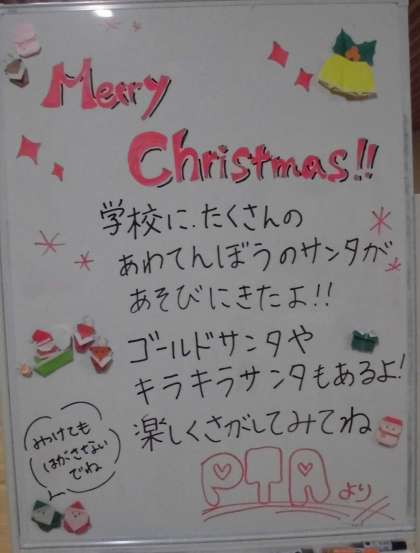 Merry
Christmas!!
学校に、たくさんの
あわてんぼうのサンタが
あそびにきたよ!!
ゴールドサンタや
キラキラサンタもあるよ!
楽しくさがしてみてね
みつけても
はがさない
でね
PTAより